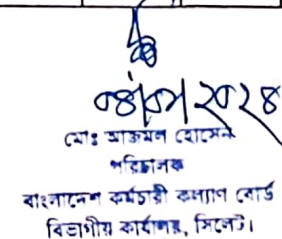 ২০২৪
মোঃ আক্তার হোসেন
পরিচালক
বাংলাদেশ কর্মচারী কল্যাণ বোর্ড
বিভাগীয় কার্যালয়, সিলেট।